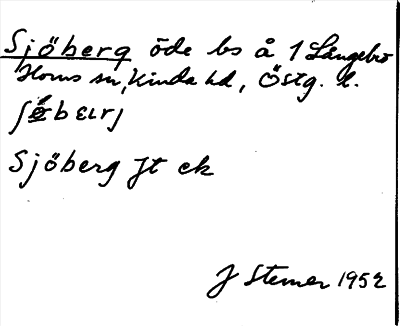 Sjöberg öde bs å 1 Långebro
Horns sn, Kinda hd, Östg. l.
Sjöberg Jt ek
J Stemer 1952